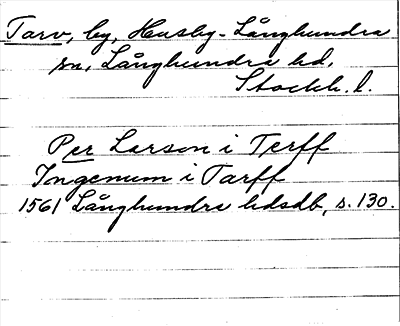 Tarv, by, Husby-Långhundra
sn, Långhundra hd,
Stockh. l.
Per Larson i Terff
Ingemum i Tarff
1561 Långhundra hdsdb, s. 130.